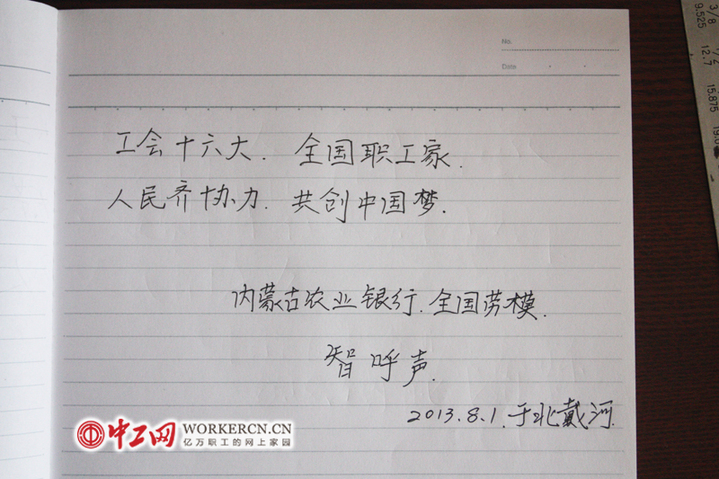 No.
Date
工会十六大. 全国职工家.
人民齐协力. 共创中国梦.
内蒙古农业银行. 全国劳模.
智呼声.
2013.8.1.于北戴河.
中工网 WORKERCN.CN
亿万职工的网上家园
3/8
9.525
1/2
12.7
15.875